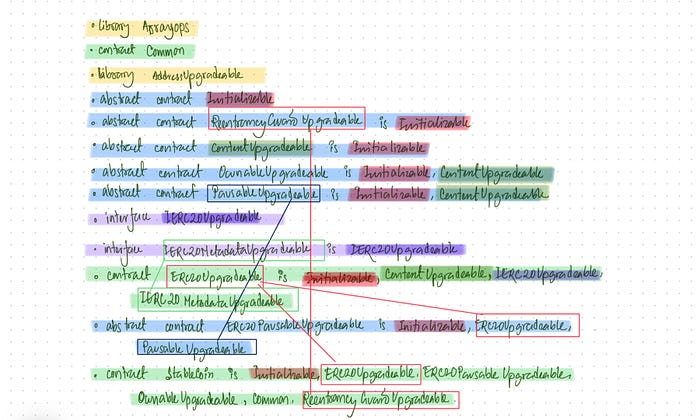 • library Arrayops
• contract Common
• library AddressUpgradeable
• abstract contract Initializable
• abstract contract ReentrancyGuardUpgradeable is Initializable
• abstract contract ContentUpgradeable is Initializable
• abstract contract OwnableUpgradeable is Initializable, ContentUpgradeable
• abstract contract PausableUpgradeable is Initializable, ContentUpgradeable
• interface IERC20Upgradeable
• interface IERC20MetadataUpgradeable is IERC20Upgradeable
• contract ERC20Upgradeable is Initializable, ContentUpgradeable, IERC20Upgradeable,
IERC20 MetadataUpgradeable
• abstract contract ERC20PausableUpgradeable is Initializable, ERC20Upgradeable,
Pausable Upgradeable
• contract Stablecoin is Initializable, ERC20Upgradeable, ERC20Pausable Upgradeable,
OwnableUpgradeable, Common, ReentrancyGuardUpgradeable.